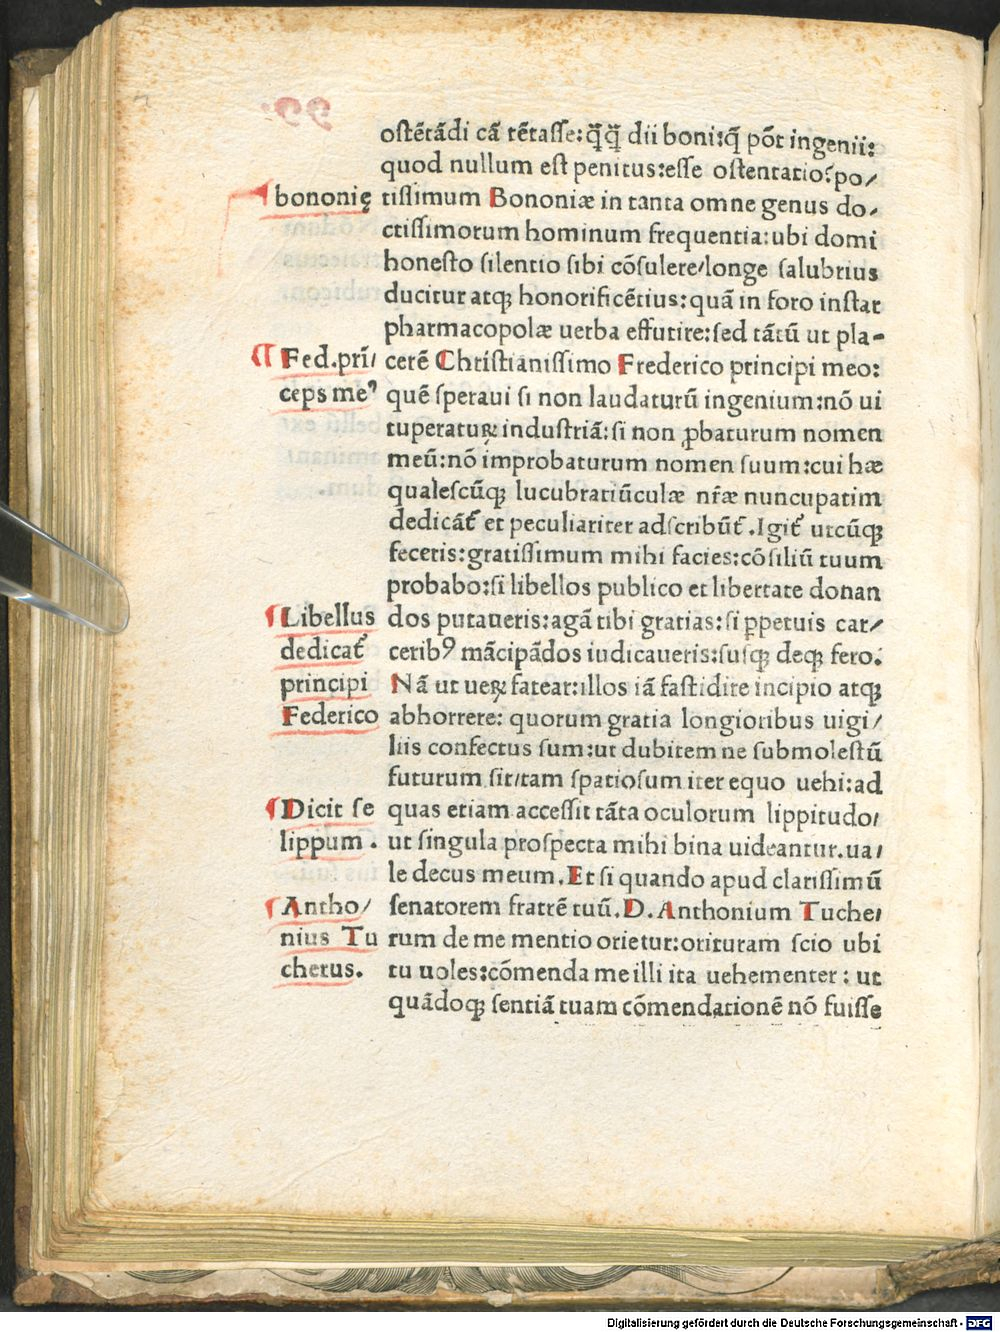 ostētādi cā tētasse: q̄q̄ dii boni: q̄ pōt ingenii:
quod nullum est penitus: esse ostentatio: po/
tissimum Bononiæ in tanta omne genus do/
ctissimorum hominum frequentia: ubi domi
honesto silentio sibi cōsulere/longe salubrius
ducitur atqꝫ honorificētius: quā in foro instar
pharmacopolæ uerba effutire: sed tātū ut pla-
cerē Christianissimo Frederico principi meo:
quē speraui si non laudaturū ingenium: nō ui
tuperaturꝝ industriā: si non ꝓbaturum nomen
meū: nō improbaturum nomen suum: cui hæ
qualescūqꝫ lucubratiūculæ nr̄æ nuncupatim
dedicāt᷑ et peculiariter adscribūt᷑. Igit᷑ utcūqꝫ
feceris: gratissimum mihi facies: cōsiliū tuum
probabo: si libellos publico et libertate donan
dos putaueris: agā tibi gratias: si ꝑpetuis car/
ceribꝰ mācipādos iudicaueris: susqꝫ deqꝫ fero.
Nā ut ueꝝ fatear: illos iā fastidire incipio atqꝫ
abhorrere: quorum gratia longioribus uigi/
liis confectus sum: ut dubitem ne submolestū
futurum sit/tam spatiosum iter equo uehi: ad
quas etiam accessit tāta oculorum lippitudo/
ut singula prospecta mihi bina uideantur. ua/
le decus meum. Et si quando apud clarissimū
senatorem fratrē tuū. D. Anthonium Tuche/
rum de me mentio orietur: orituram scio ubi
tu uoles: cōmenda me illi ita uehementer: ut
quādoqꝫ sentiā tuam cōmendationē nō fuisse
bononię
¶ Fed. prī/
ceps meꝰ
¶ Libellus
dedicat᷑
principi
Federico
¶ Dicit se
lippum.
¶ Antho/
nius Tu
cherus.
Digitalisierung gefördert durch die Deutsche Forschungsgemeinschaft - DFG